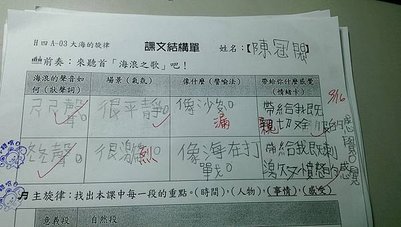 H四A-03大海的旋律 課文結構單 姓名:【陳冠閎】
前奏:來聽首「海浪之歌」吧!
海浪的聲音如何(狀聲詞) 場景(氣氛) 像什麼(譬喻法) 帶給你什麼感覺(情緒卡)
ㄕㄕ聲 很平靜。 像沙。 漏 帶給我既親切又 的感覺。
9/16
聲 很激烈 像海在打戰。 帶給我既 又憤怒的感覺
主旋律:找出本課中每一段的重點。(時間),(人物),(事情),(感受)
意義段 自然段